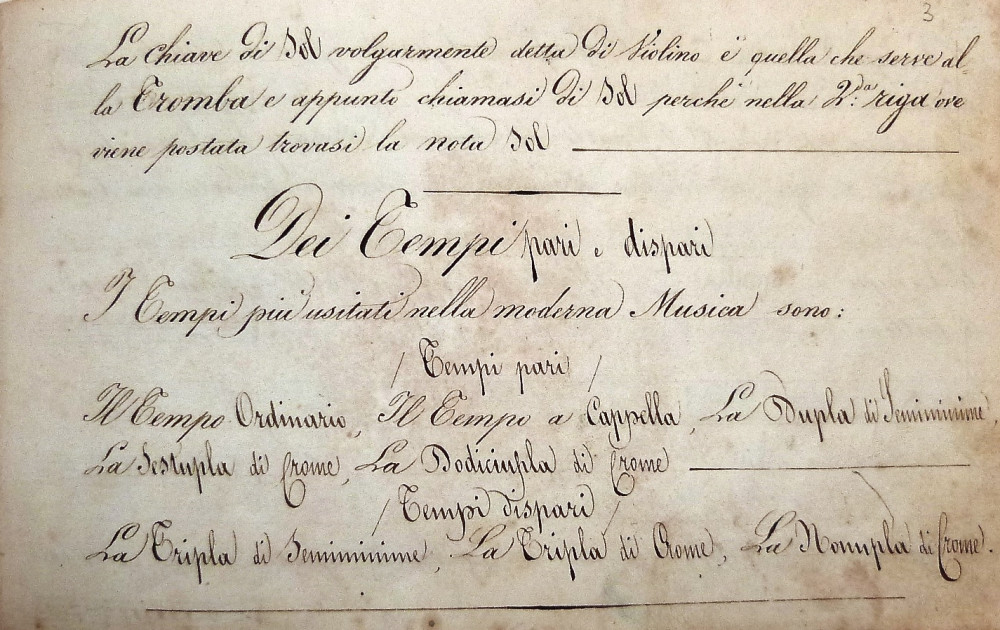 3
La chiave di Sol volgarmente detta di Violino è quella che serve al-
la Tromba e appunto chiamasi di Sol perchè nella 2.da riga ove
viene postata trovasi la nota Sol
Dei Tempi pari e dispari
I Tempi più usitati nella moderna Musica sono:
/ Tempi pari /
Il Tempo Ordinario, Il Tempo a Cappella, La Dupla di Semiminime,
La Sestupla di Crome, La Dodicupla di Crome
/ Tempi dispari /
La Tripla di Semiminime, La Tripla di Crome, La Nonupla di Crome.